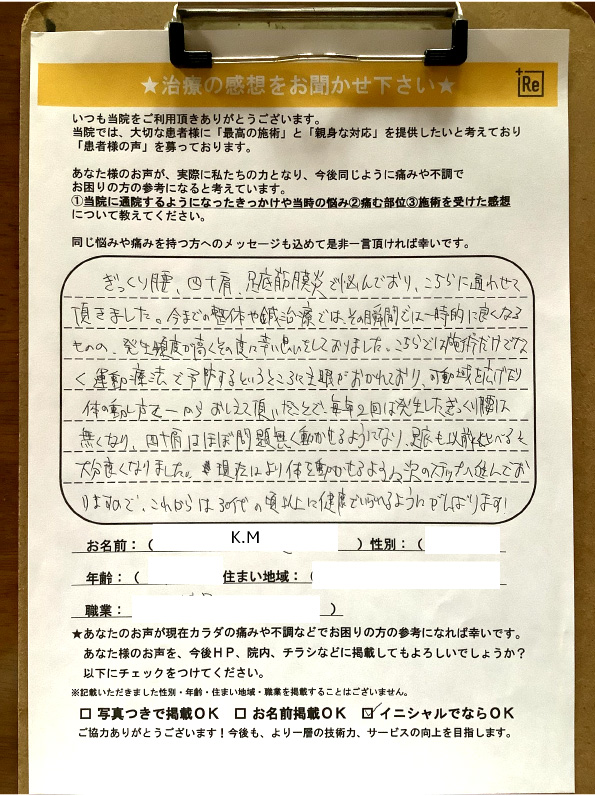 ★治療の感想をお聞かせ下さい★
+Re
いつも当院をご利用頂きありがとうございます。
当院では、大切な患者様に「最高の施術」と「親身な対応」を提供したいと考えており
「患者様の声」を募っております。
あなた様のお声が、実際に私たちの力となり、今後同じように痛みや不調で
お困りの方の参考になると考えています。
①当院に通院するようになったきっかけや当時の悩み②痛む部位③施術を受けた感想
について教えてください。
同じ悩みや痛みを持つ方へのメッセージも込めて是非一言頂ければ幸いです。
ぎっくり腰、四十肩、足底筋膜炎で悩んでおり、こちらに通わせて
頂きました。今までの整体や鍼治療では、その瞬間では一時的に良くなる
ものの、発生頻度が高くその度に辛い思いをしておりました。こちらでは施術だけでな
く運動療法で予防するというところに主眼がおかれており、可動域を広げたり
体の動し方を一からおしえて頂いたことで、毎年2回は発生したぎっくり腰は
無くなり、四十肩はほぼ問題無く動かせるようになり、足底も以前と比べると
大分良くなりました。現在はより体を動かせるよう次のステップへ進んでお
りますので、これからは30代の頃以上に健康でいられるようにがんばります!
お名前：（ K.M ）性別：（
年齢：（ 住まい地域：（
職業： ）
★あなたのお声が現在カラダの痛みや不調などでお困りの方の参考になれば幸いです。
あなた様のお声を、今後ＨＰ、院内、チラシなどに掲載してもよろしいでしょうか？
以下にチェックをつけてください。
※記載いただきました性別・年齢・住まい地域・職業を掲載することはございません。
□ 写真つきで掲載ＯＫ □ お名前掲載ＯＫ ☑ イニシャルでならＯＫ
ご協力ありがとうございます！今後も、より一層の技術力、サービスの向上を目指します。